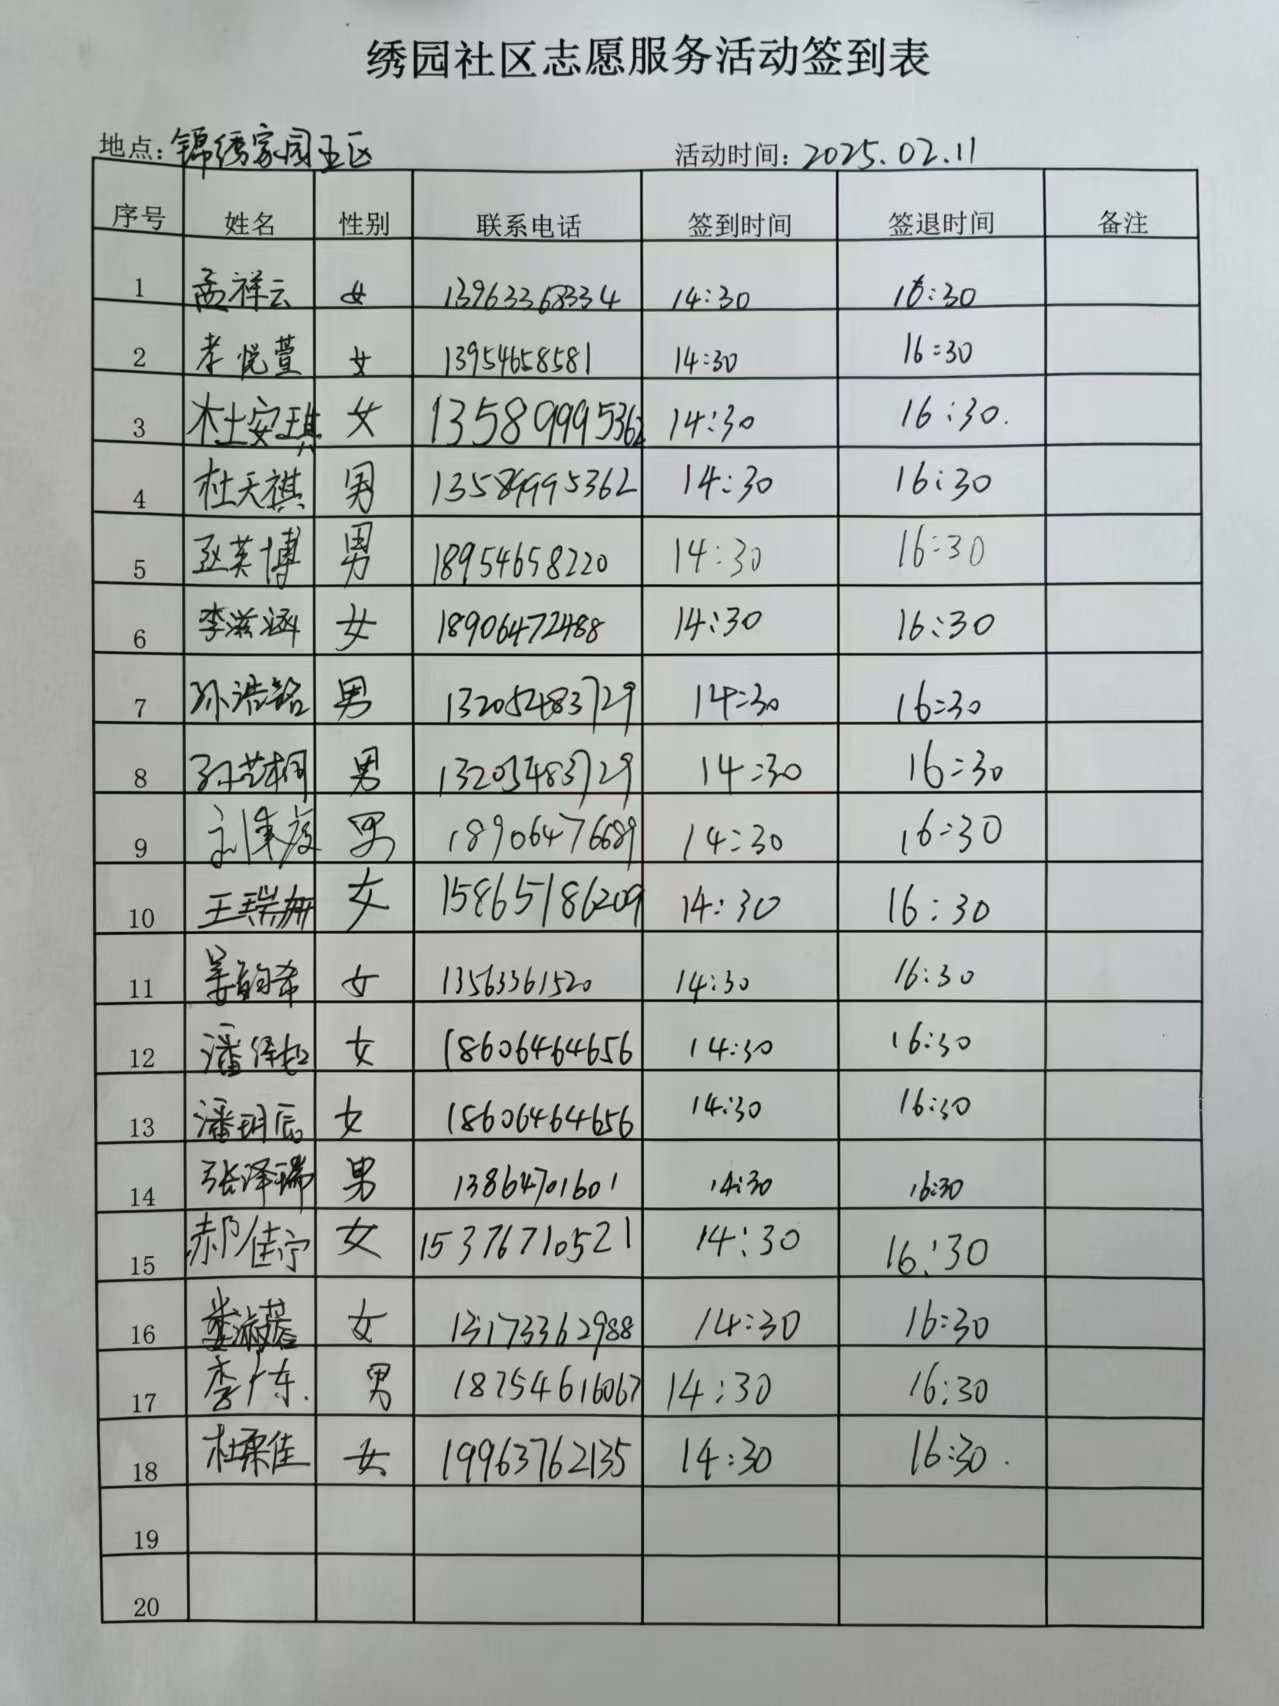 绣园社区志愿服务活动签到表
地点：锦绣家园五区 活动时间：2025.02.11
序号 姓名 性别 联系电话 签到时间 签退时间 备注
1 孟祥云 女 13963368334 14:30 16:30
2 李悦萱 女 13954658581 14:30 16:30
3 杜安琪 女 13589995362 14:30 16:30.
4 杜天祺 男 13589995362 14:30 16:30
5 英博 男 18954658220 14:30 16:30
6 李滋涵 女 18906472488 14:30 16:30
7 孙浩铭 男 13205483729 14:30 16:30
8 孙艺桐 男 13205483729 14:30 16:30
9 男 18906476689 14:30 16:30
10 王瑞姗 女 15865186209 14:30 16:30
11 姜韵希 女 13563361520 14:30 16:30
12 潘 女 18606464656 14:30 16:30
13 潘玥辰 女 18606464656 14:30 16:30
14 张泽瑞 男 13864701601 14:30 16:30
15 郝佳宁 女 15376710521 14:30 16:30
16 娄淑蓉 女 13173362988 14:30 16:30
17 李广东. 男 18754616067 14:30 16:30
18 杜梁佳 女 19963762135 14:30 16:30.
19
20